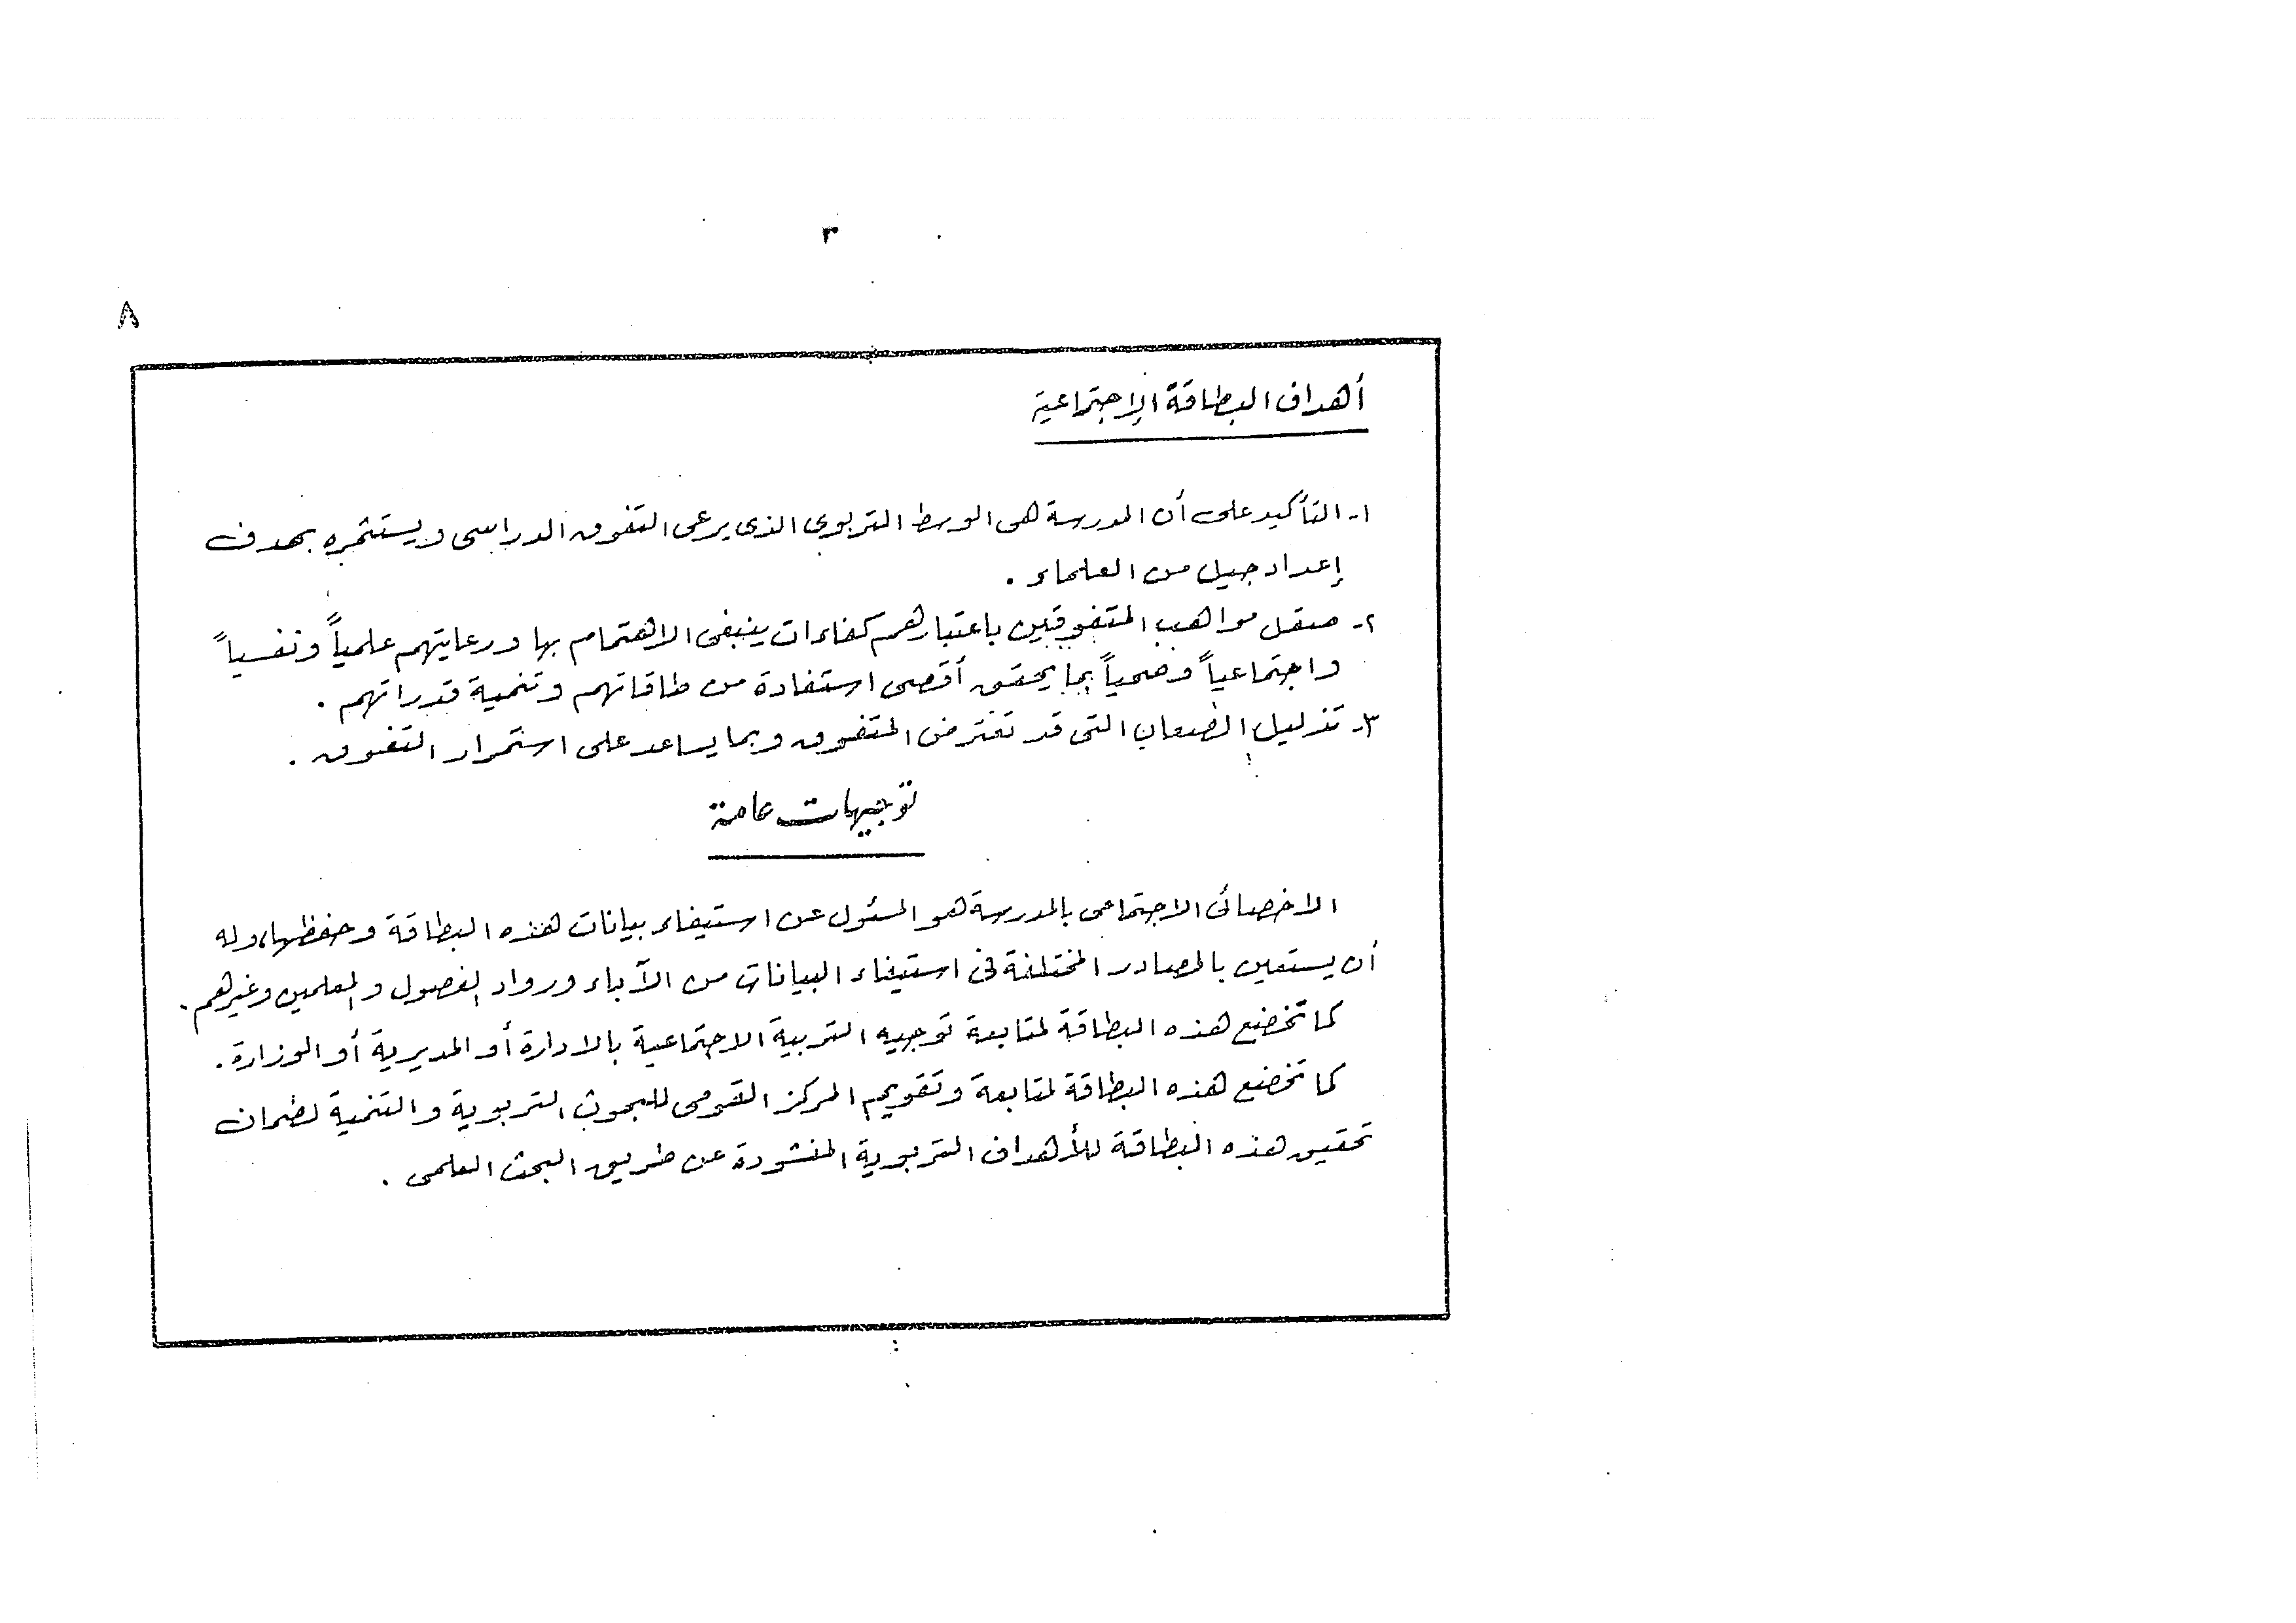 ٣
٨
أهداف البطاقة الإجتماعية
١- التأكيد على أن المدرسة هى الوسط التربوى الذى يرعى التفوق الدراسى ويستثمره بهدف
إعداد جيل من العلماء .
٢- صقل مواهب المتفوقين باعتبارهم كفاءات ينبغى الاهتمام بها ورعايتهم علمياً ونفسياً
واجتماعياً وصحياً بما يحقق أقصى استفادة من طاقاتهم وتنمية قدراتهم .
٣- تذليل الصعاب التى قد تعترض المتفوق وبما يساعد على استمرار التفوق .
توجيهات عامة
الاخصائى الاجتماعى بالمدرسة هو المسئول عن استيفاء بيانات هذه البطاقة وحفظها، وله
أن يستعين بالمصادر المختلفة فى استيفاء البيانات من الآباء ورواد الفصول والمعلمين وغيرهم .
كما تخضع هذه البطاقة لمتابعة توجيه التربية الاجتماعية بالادارة أو المديرية أو الوزارة .
كما تخضع هذه البطاقة لمتابعة وتقويم المركز القومى للبحوث التربوية والتنمية لضمان
تحقيق هذه البطاقة للأهداف التربوية المنشودة عن طريق البحث العلمى .